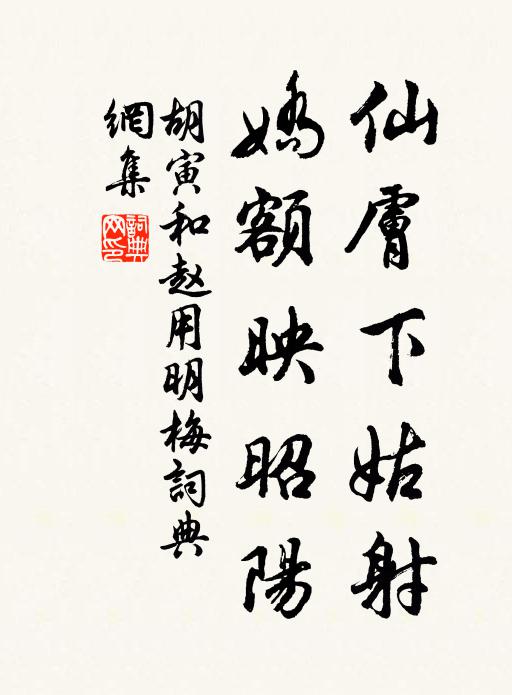 仙膚下姑射
嬌額映昭陽
胡寅和赵用明梅詞典
網集
詞典
网印